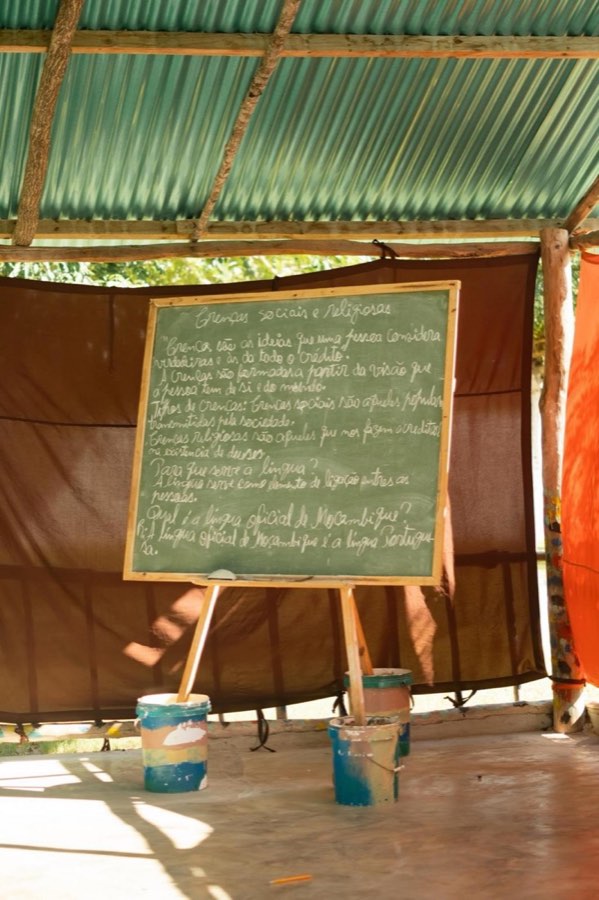 Crenças sociais e religiosas
"Crenças são as ideias que uma pessoa considera
verdadeiras e às dá todo o crédito.
A Crenças são formadas a partir da visão que
a pessoa tem de si e do mundo.
Tipos de Crenças: Crenças sociais são aquelas populares
transmitidas pela sociedade.
Crenças religiosas são aquelas que nos fazem acreditar
na existência de deuses.
Para que serve a língua?
A língua serve como elemento de ligação entre as
pessoas.
Qual é a língua oficial de Moçambique?
R: A língua oficial de Moçambique é a língua Portugue
sa.